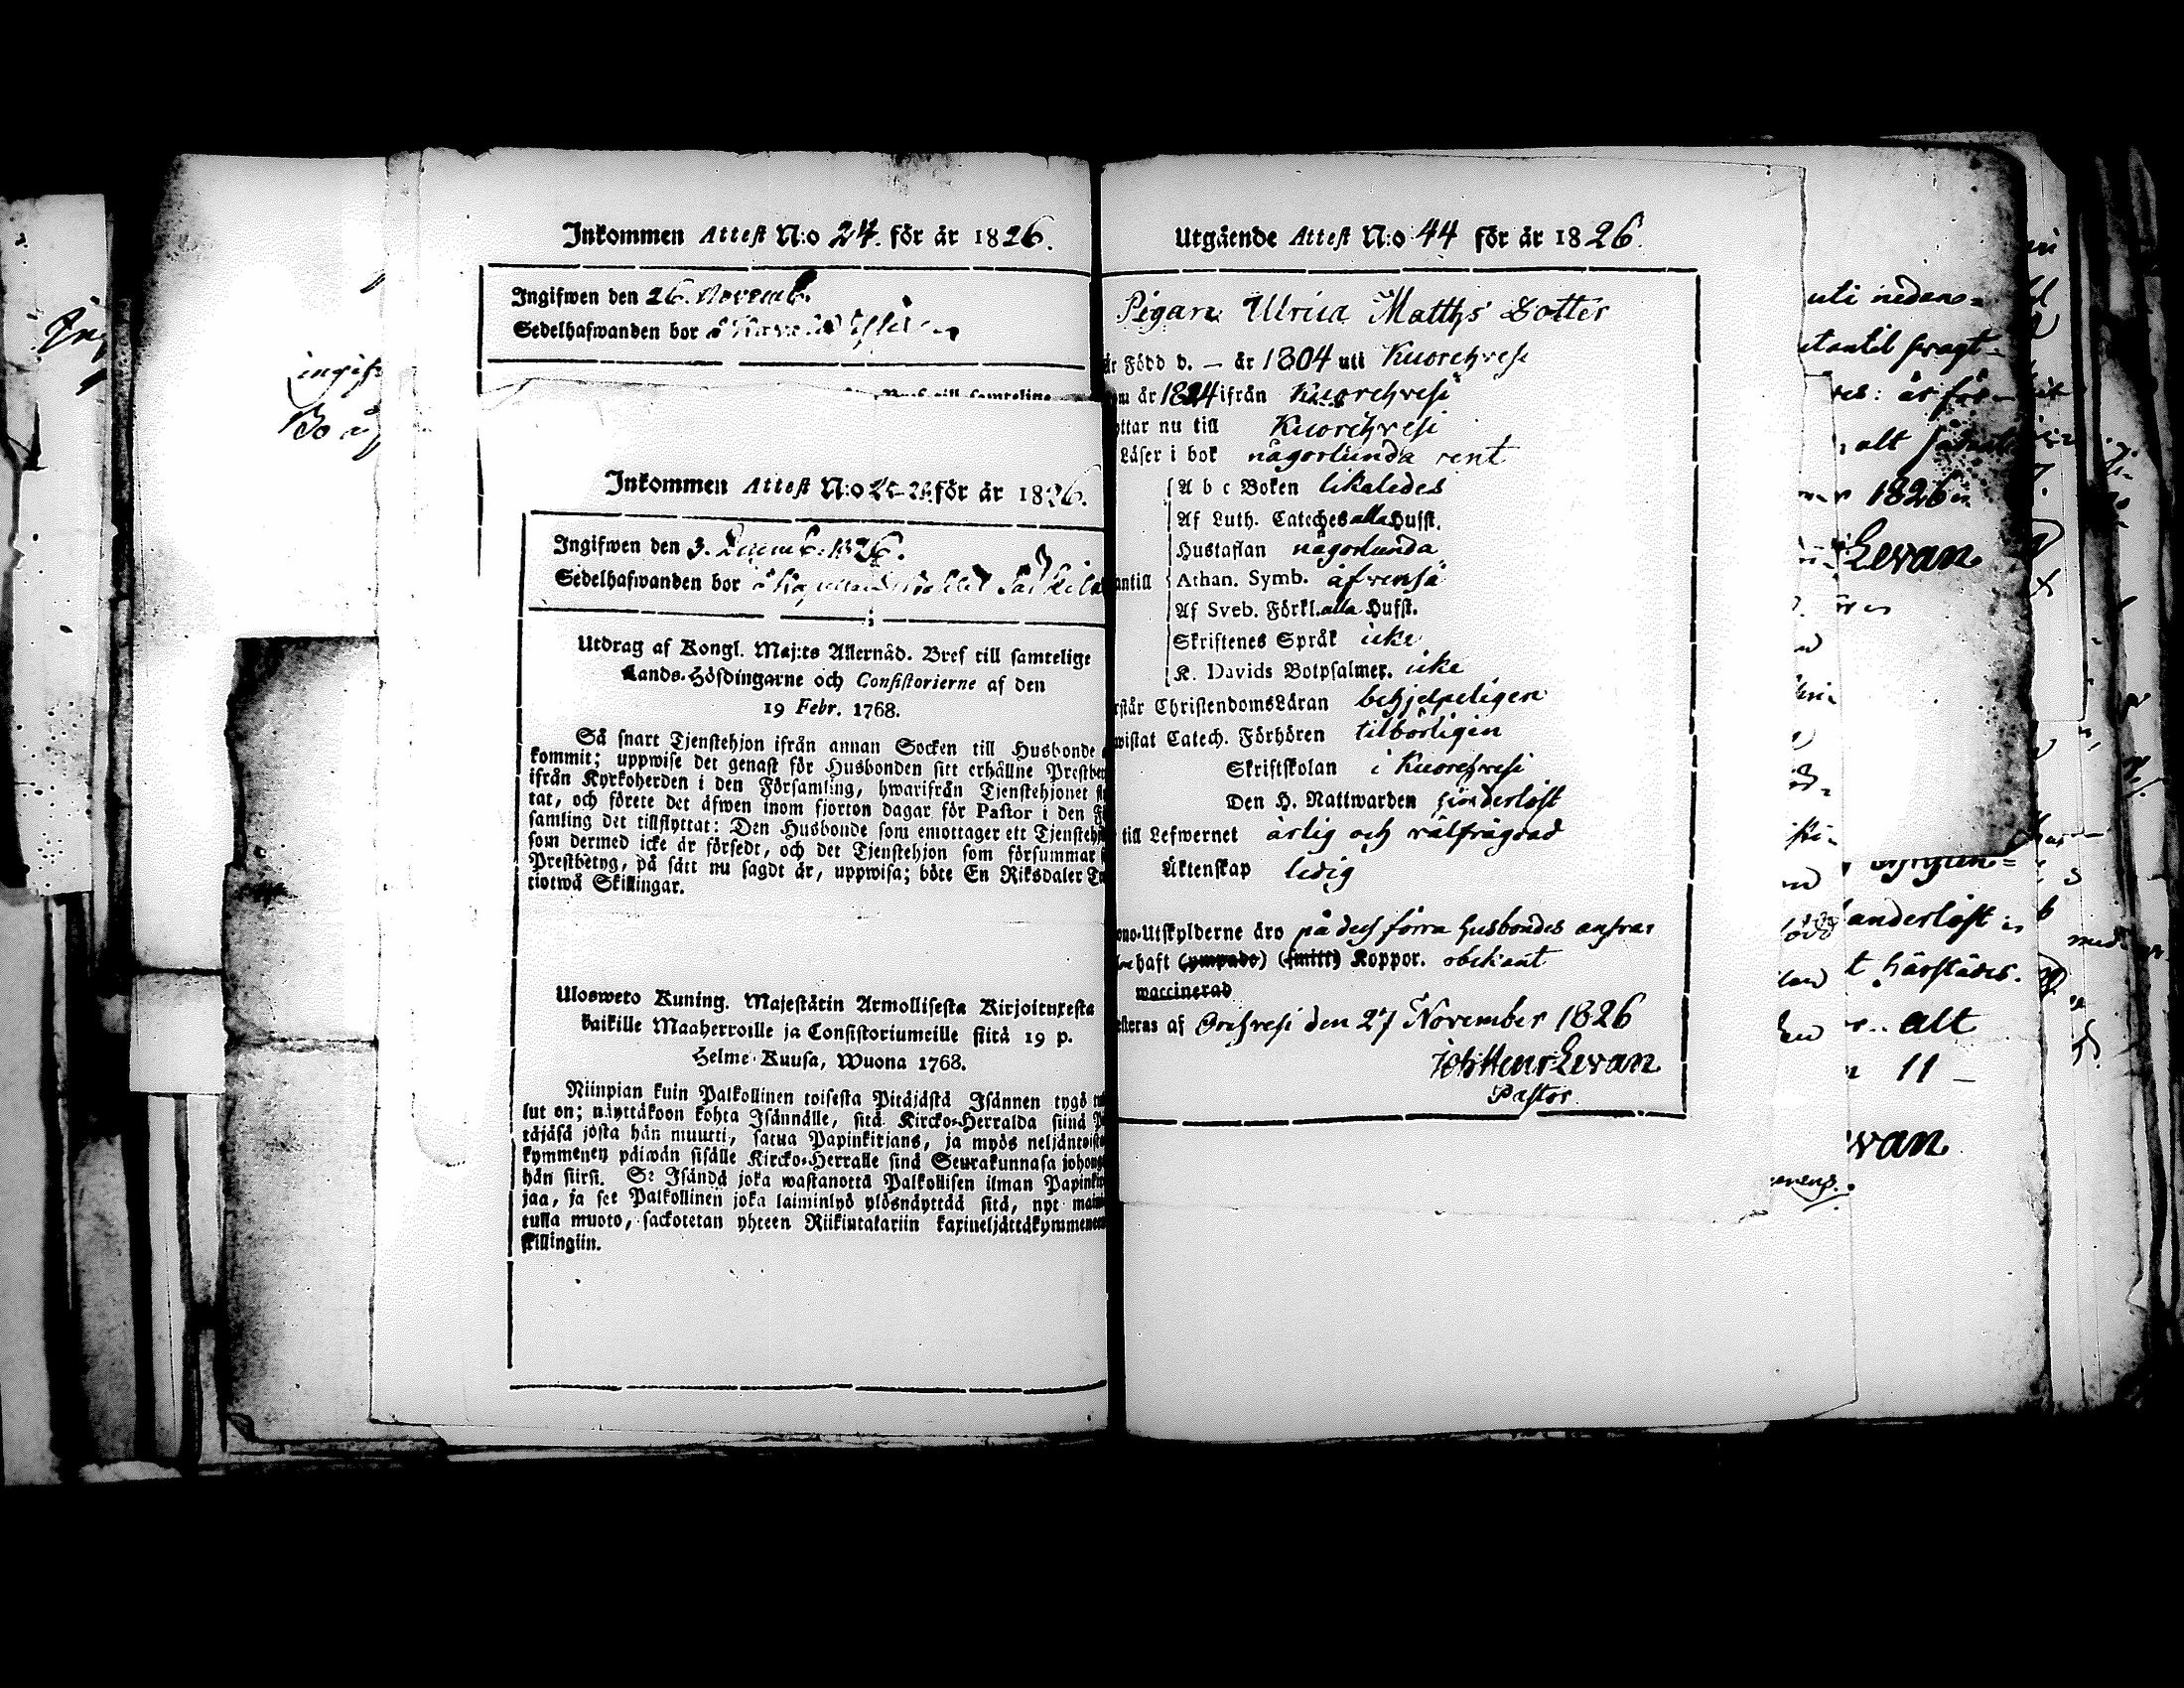 Inkommen Attest N:o 24. för år 1826.
Ingifwen den 26. Novemb.
Sedelhafwanden bor å
Inkommen Attest N:o 25-26. för år 1826.
Ingifwen den 3. Decemb. 1826.
Sedelhafwanden bor å
Utdrag af Kongl. Maj:ts Allernåd. Bref till samtelige
Lands-Höfdingarne och Consistorierne af den
19 Febr. 1768.
Så snart Tjenstehjon ifrån annan Socken till Husbonde
kommit; uppwise det genast för Husbonden sitt erhållne Prestbe
ifrån Kyrkoherden i den Församling, hwarifrån Tjenstehjonet
tat, och förete det äfwen inom fjorton dagar för Pastor i den
samling det tillflyttat: Den Husbonde som emottager ett Tjensteh
som dermed icke är försedt, och det Tjenstehjon som försummar
Prestbetyg, på sätt nu sagdt är, uppwisa; böte En Riksdaler
tiotwå Skillingar.
Ulosweto Kuning. Majestätin Armollisesta Kirjoituxesta
kaikille Maaherroille ja Consistoriumeille siitä 19 p.
Helme-Kuusa, Wuona 1768.
Niinpian kuin Palkollinen toisesta Pitäjästä Isännen tygö
lut on; näyttäköön kohta Isännälle, sitä Kircko-Herralda siinä
täjäsä josta hän muutti, satua Papinkirjans, ja myös neljäntoista
kymmenen päiwän sisälle Kircko-Herralle sinä Seurakunnasa johon
hän siirsi. Se Isändä joka wastanotta Palkollisen ilman Papinki
jaa, ja see Palkollinen joka laiminlyö ylösnäyttää sitä, nyt mai
tulla muoto, sackotetan yhteen Riikintalariin kaxineljättäkymmenen
skillingiin.
Utgående Attest N:o 44 för år 1826.
Pigan Ulrica Matths Dotter
är Född d. — år 1804 uti Kuorehvesi
om år 1824 ifrån Kuorehvesi
ttar nu till Kuorehvesi
Läser i bok någorlunda rent
A b c Boken likaledes
Af Luth. Cateches alla Hufst.
Hustaflan någorlunda
antill Athan. Symb. äfvenså
Af Sveb. Förkl. alla Hufst.
Skriftenes Språk icke
K. Davids Botpsalmer. icke
rstår ChristendomsLäran behjelpeligen
wistat Catech. Förhören tilbörligen
Skriftskolan i Kuorehvesi
Den H. Nattwarden hinderlöst
till Lefwernet ärlig och välfrägdad
Äktenskap ledig
ono-Utskylderne äro på dess förra husbondes answar
haft (ympade) (smitt) Koppor. obekant
waccinerad
esteras af Orehvesi den 27 November 1826
Joh Henr Levan
Pastor.
uti nedans=
alt
1826
Levan
anderlöst
t härstädes.
alt
11 —
evan